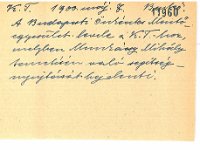 K.T. 1900. máj. 8. 11960
A Budapesti Önkéntes Mentő
egyesület levele a K.T.-hoz,
melyben Munkácsy Mihály
temetésén való segítség-
nyújtását bejelenti.